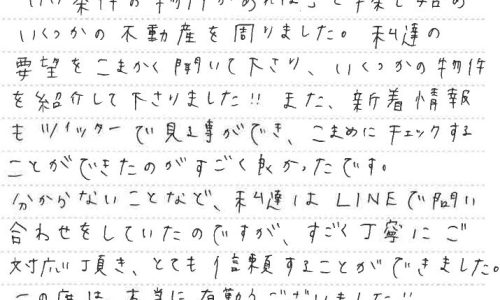 いい条件の物件があれば と探し始め
いくつかの不動産を周りました。私達の
要望をこまかく聞いて下さり、いくつかの物件
を紹介して下さりました!! また、新着情報
もツイッターで見る事ができ、こまめにチェックする
ことができたのがすごく良かったです。
分からないことなど、私達はLINEで問い
合わせをしていたのですが、すごく丁寧にご
対応頂き、とても信頼することができました。
この度は、本当に有難うございました!!